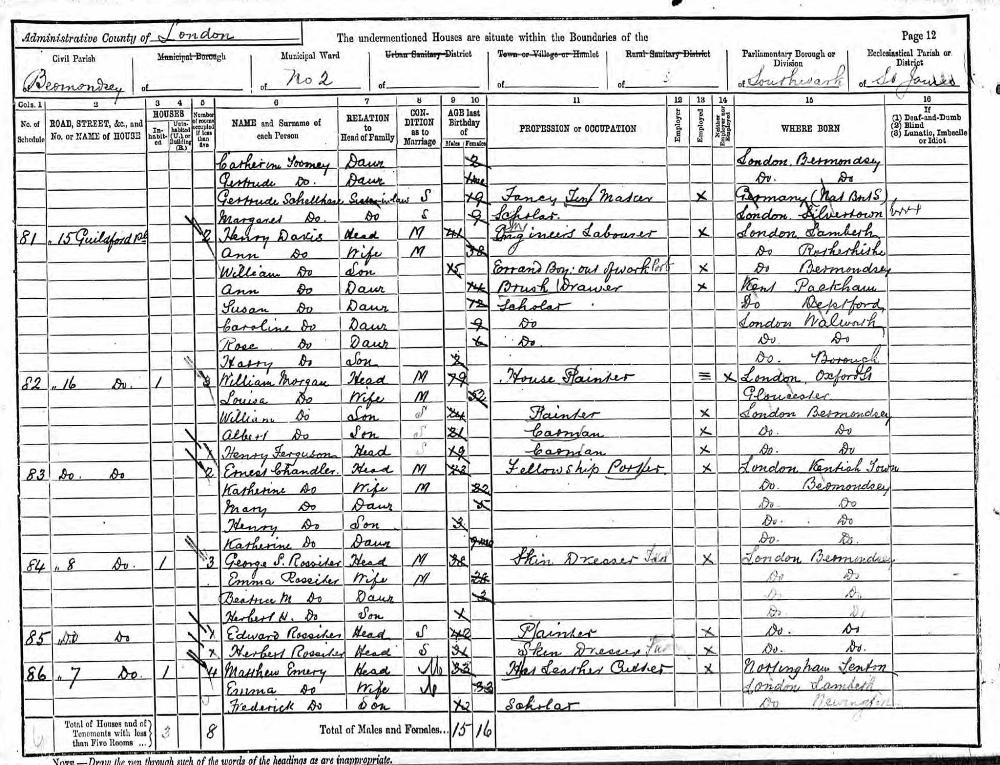 Administrative County of London The undermentioned Houses are situate within the Boundaries of the Page 12
Civil Parish Municipal Borough Municipal Ward Urban Sanitary District Town or Village or Hamlet Rural Sanitary District Parliamentary Borough or Division Ecclesiastical Parish or District
Bermondsey of of No 2 of of of of Southwark of St James
Cols. 1 2 3 4 5 6 7 8 9 10 11 12 13 14 15 16
No. of Schedule ROAD, STREET, &c., and No. or NAME of HOUSE HOUSES Inhabited Uninhabited (U.) or Building (B.) Number of rooms occupied if less than five NAME and Surname of each Person RELATION to Head of Family CONDITION as to Marriage AGE last Birthday of Males Females PROFESSION or OCCUPATION Employer Employed Neither Employer nor Employed WHERE BORN If (1) Deaf-and-Dumb (2) Blind (3) Lunatic, Imbecile or Idiot
Catherine Toomey Daur 2 London Bermondsey
Gertrude Do. Daur Do. Do
Gertrude Sister in law S 19 Fancy Maker x Germany
Margaret Do. Do S 9 Scholar London Silvertown
81 " 15 Guildford 2 Henry Davis Head M 41 Engineers Labourer x London Lambeth
Ann Do Wife M 38 Do Rotherhithe
William Do Son 15 Errand Boy: out of work x Do Bermondsey
Ann Do Daur 14 Brush Drawer x Kent Peckham
Susan Do Daur 12 Scholar Do Deptford
Caroline Do Daur 9 Do London Walworth
Rose Do Daur 6 Do Do. Do
Harry Do Son 2 Do. Borough
82 " 16 Do. 1 3 William Morgan Head M 49 House Painter x London, Oxford St
Louisa Do Wife M 52 Gloucester
William Do Son S 24 Painter x London Bermondsey
Albert Do Son S 21 Carman x Do. Do
Henry Ferguson Head S 19 Carman x Do. Do
83 Do. Do 2 Ernest Chandler. Head M Fellowship Porter x London Kentish Town
Katherine Do Wife M 32 Do. Bermondsey
Mary Do Daur 5 Do. Do
Henry Do Son 3 Do. Do
Katherine Do Daur Do. Do.
84 " 8 Do. 1 3 George S. Rossiter Head M 38 Skin Dresser Fur x London Bermondsey
Emma Rossiter Wife M Do Do
Beatrice M Do Daur 3 Do
Herbert H. Do Son Do. Do
85 " Do Do 1 Edward Rossiter Head S 42 Painter x Do. Do
Herbert Rossiter Head S Skin Dresser Fur x Do. Do.
86 " 7 Do. 1 4 Matthew Emery Head M 33 Leather Cutter x Nottingham Lenton
Emma Do Wife 33 London Lambeth
Frederick Do Son 12 Scholar Do Newington
Total of Houses and of Tenements with less than Five Rooms ... 3 8 Total of Males and Females... 15 16
NOTE.—Draw the pen through such of the words of the headings as are inappropriate.